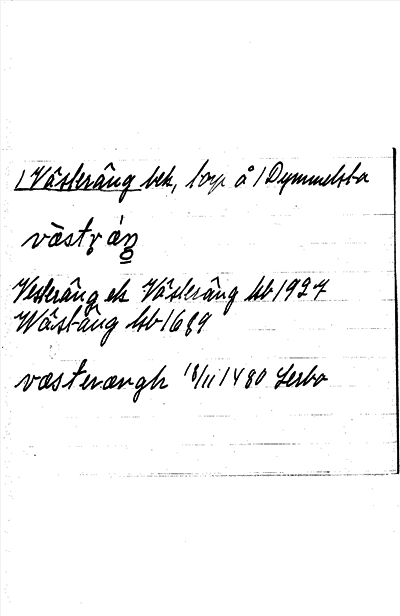 /Västeräng bek, torp å /Dymmelsta
västr ä́ng
Vesteräng el Västeräng hb 1927
Wästäng hb 1689
væsterængh 18/11 1480 Lerbo